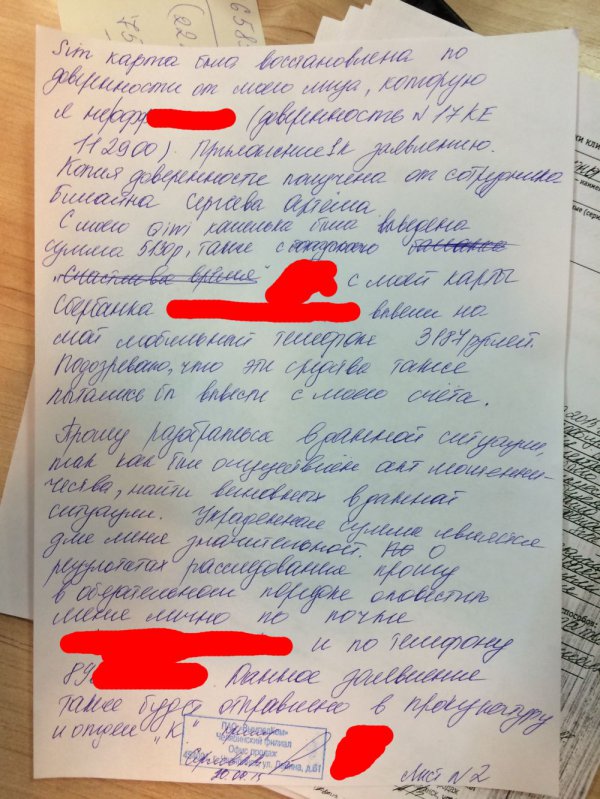 Sim карта была восстановлена по
доверенности от моего лица, которую
я не офор (доверенность N 17 КЕ
112900). Приложение 1 к заявлению.
Копия доверенности получена от сотрудника
Билайна Сергеева Артёма.
С моего Qiwi кошелька была выведена
сумма 5130р, также с
"Счастливое время" с моей карты
Сбербанка вывели на
мой мобильный телефон 3187 рублей.
Подозреваю, что эти средства также
пытались бы вывести с моего счёта.
Прошу разобраться в данной ситуации,
так как был осуществлён акт мошенни-
чества, найти виновных в данной
ситуации. Украденная сумма является
для меня значительной. О
результатах расследования прошу
в обязательном порядке оповестить
меня лично по почте
и по телефону
89 Данное заявление
также будет отправлено в прокуратуру
и отдел "К"
ПАО "Вымпелком"
Челябинский филиал
Офис продаж
ул. Ленина, д.61
Лист N 2